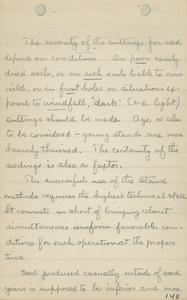 The severity of the cuttings for seed
depend on conditions. On poor easily
dried soils, or on such soils liable to run
wild, or in frost holes or situations ex-
posed to windfall, "dark" (i.e. light)
cuttings should be made. Age is also
to be considered - young stands are more
heavily thinned. The certainty of the
seedings is also a factor.
The successful use of the stand
methods requires the highest technical skill.
It consists in short of bringing about
simultaneous uniform favorable con-
ditions for each operation at the proper
time.
Seed produced casually outside of seed
years is supposed to be inferior and most
148